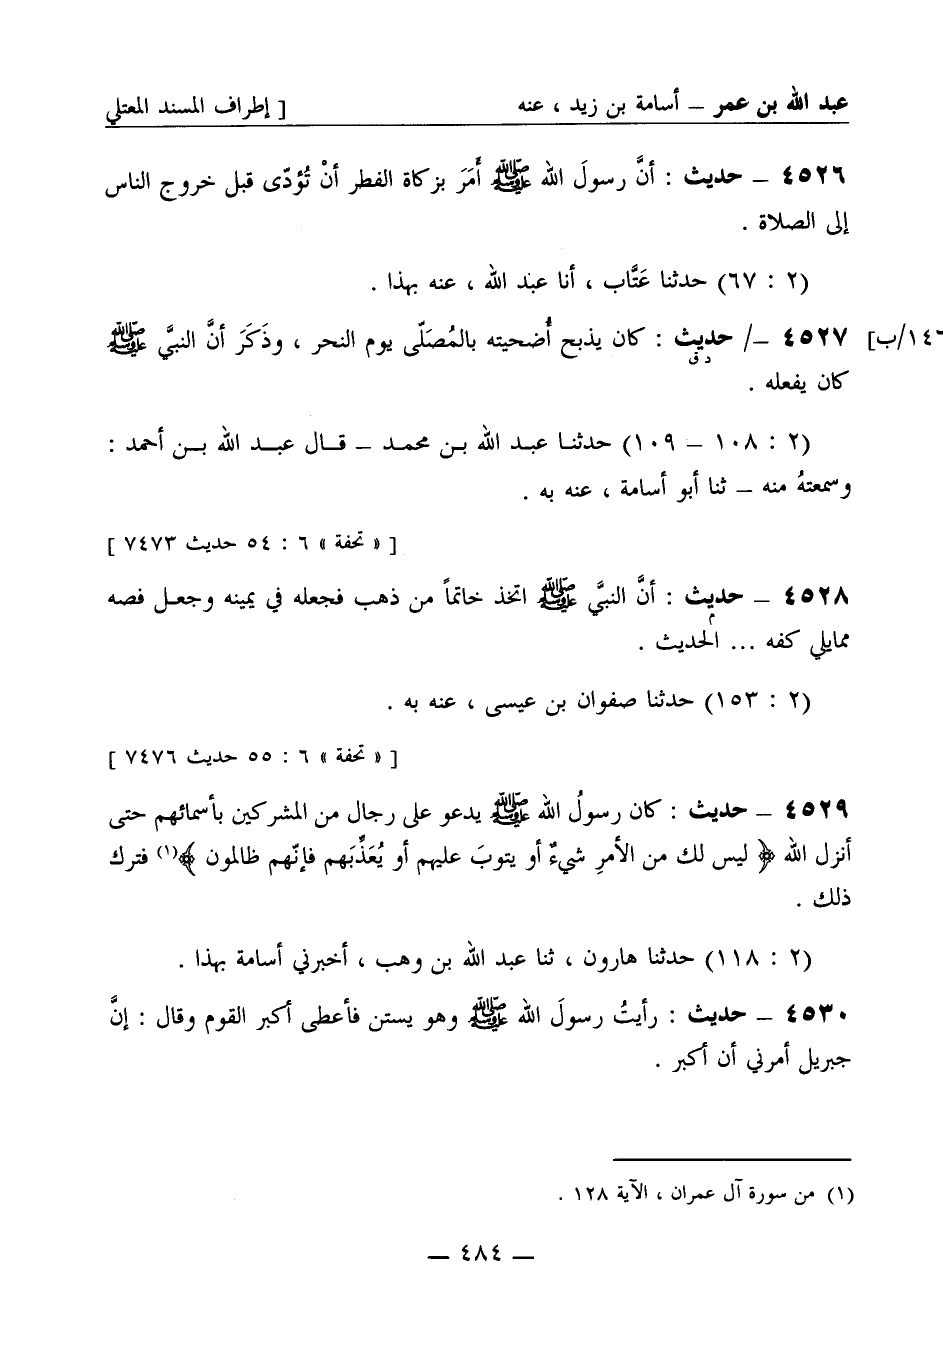 عبد الله بن عمر – أسامة بن زيد ، عنه [ إطراف المسند المعتلي
٤٥٢٦ – حديث : أنَّ رسولَ الله ﷺ أَمَرَ بزكاة الفطر أنْ تُؤدّى قبل خروج الناس
إلى الصلاة .
(٢ : ٦٧) حدثنا عَتَّاب ، أنا عبد الله ، عنه بهذا .
١٤٦/ب] ٤٥٢٧ –/ حديث : كان يذبح أُضحيته بالمُصَلّى يوم النحر ، وذَكَرَ أنَّ النبيَّ ﷺ
د ق
كان يفعله .
(٢ : ١٠٨ – ١٠٩) حدثنا عبد الله بن محمد – قال عبد الله بن أحمد :
وسمعتهُ منه – ثنا أبو أسامة ، عنه به .
[ « تحفة » ٦ : ٥٤ حديث ٧٤٧٣ ]
٤٥٢٨ – حديث : أنَّ النبيَّ ﷺ اتخذ خاتماً من ذهب فجعله في يمينه وجعل فصه
م
ممايلي كفه ... الحديث .
(٢ : ١٥٣) حدثنا صفوان بن عيسى ، عنه به .
[ « تحفة » ٦ : ٥٥ حديث ٧٤٧٦ ]
٤٥٢٩ – حديث : كان رسولُ الله ﷺ يدعو على رجال من المشركين بأسمائهم حتى
أنزل الله ﴿ ليس لك من الأمرِ شيءٌ أو يتوبَ عليهم أو يُعَذِّبَهم فإنّهم ظالمون ﴾(١) فترك
ذلك .
(٢ : ١١٨) حدثنا هارون ، ثنا عبد الله بن وهب ، أخبرني أسامة بهذا .
٤٥٣٠ – حديث : رأيتُ رسولَ الله ﷺ وهو يستن فأعطى أكبر القوم وقال : إنَّ
جبريل أمرني أن أكبر .
(١) من سورة آل عمران ، الآية ١٢٨ .
– ٤٨٤ –